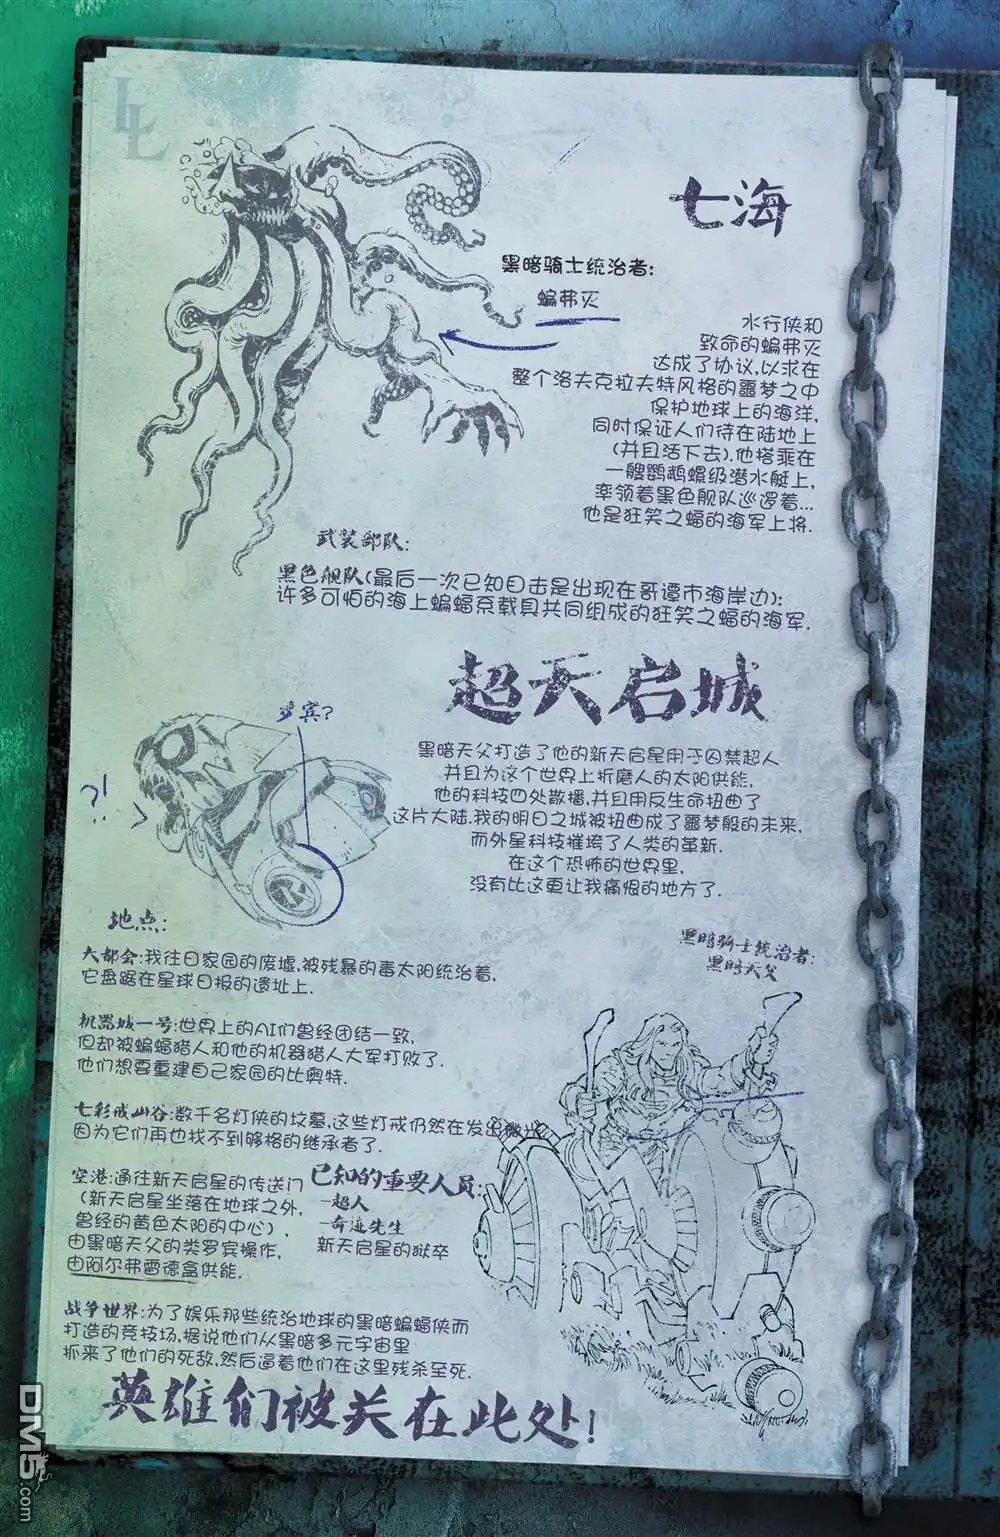 LL
七海
黑暗骑士统治者:
蝙弗灭
水行侠和
致命的蝙弗灭
达成了协议,以求在
整个洛夫克拉夫特风格的噩梦之中
保护地球上的海洋,
同时保证人们待在陆地上
(并且活下去).他搭乘在
一艘鹦鹉螺级潜水艇上,
率领着黑色舰队巡逻着...
他是狂笑之蝠的海军上将.
武装部队:
黑色舰队(最后一次已知目击是出现在哥谭市海岸边):
许多可怕的海上蝙蝠系载具共同组成的狂笑之蝠的海军.
超天启城
罗宾?
?!
黑暗天父打造了他的新天启星用于囚禁超人
并且为这个世界上折磨人的太阳供能,
他的科技四处散播,并且用反生命扭曲了
这片大陆.我的明日之城被扭曲成了噩梦般的未来,
而外星科技摧垮了人类的革新.
在这个恐怖的世界里,
没有比这更让我痛恨的地方了.
地点:
大都会:我往日家园的废墟,被残暴的毒太阳统治着,
它盘踞在星球日报的遗址上.
黑暗骑士统治者:
黑暗天父
机器城一号:世界上的AI们曾经团结一致,
但却被蝙蝠猎人和他的机器猎人大军打败了.
他们想要重建自己家园的比奥特.
七彩戒山谷:数千名灯侠的坟墓,这些灯戒仍然在发出微光
因为它们再也找不到够格的继承者了.
空港:通往新天启星的传送门
(新天启星坐落在地球之外,
曾经的黄色太阳的中心),
由黑暗天父的类罗宾操作,
由阿尔弗雷德盒供能.
已知的重要人员:
-超人
-奇迹先生
新天启星的狱卒
战争世界:为了娱乐那些统治地球的黑暗蝙蝠侠而
打造的竞技场.据说他们从黑暗多元宇宙里
抓来了他们的死敌,然后逼着他们在这里残杀至死.
英雄们被关在此处!
DM5.com